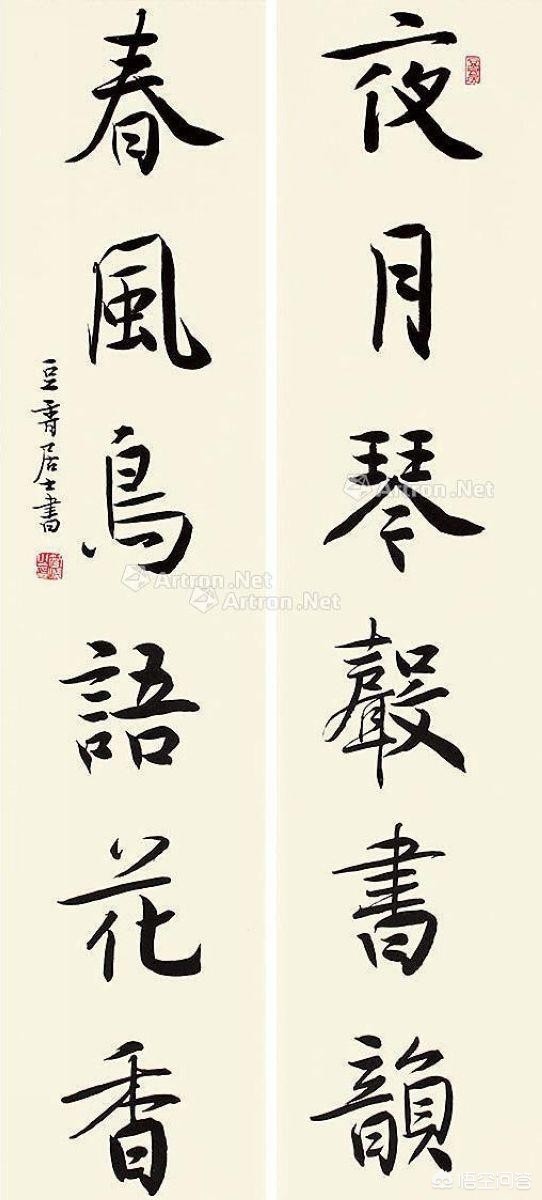 夜月琴聲書韻
春風鳥語花香
豆青居士書
Artron.Net
Artron.Net
Artron.Net
悟空问答